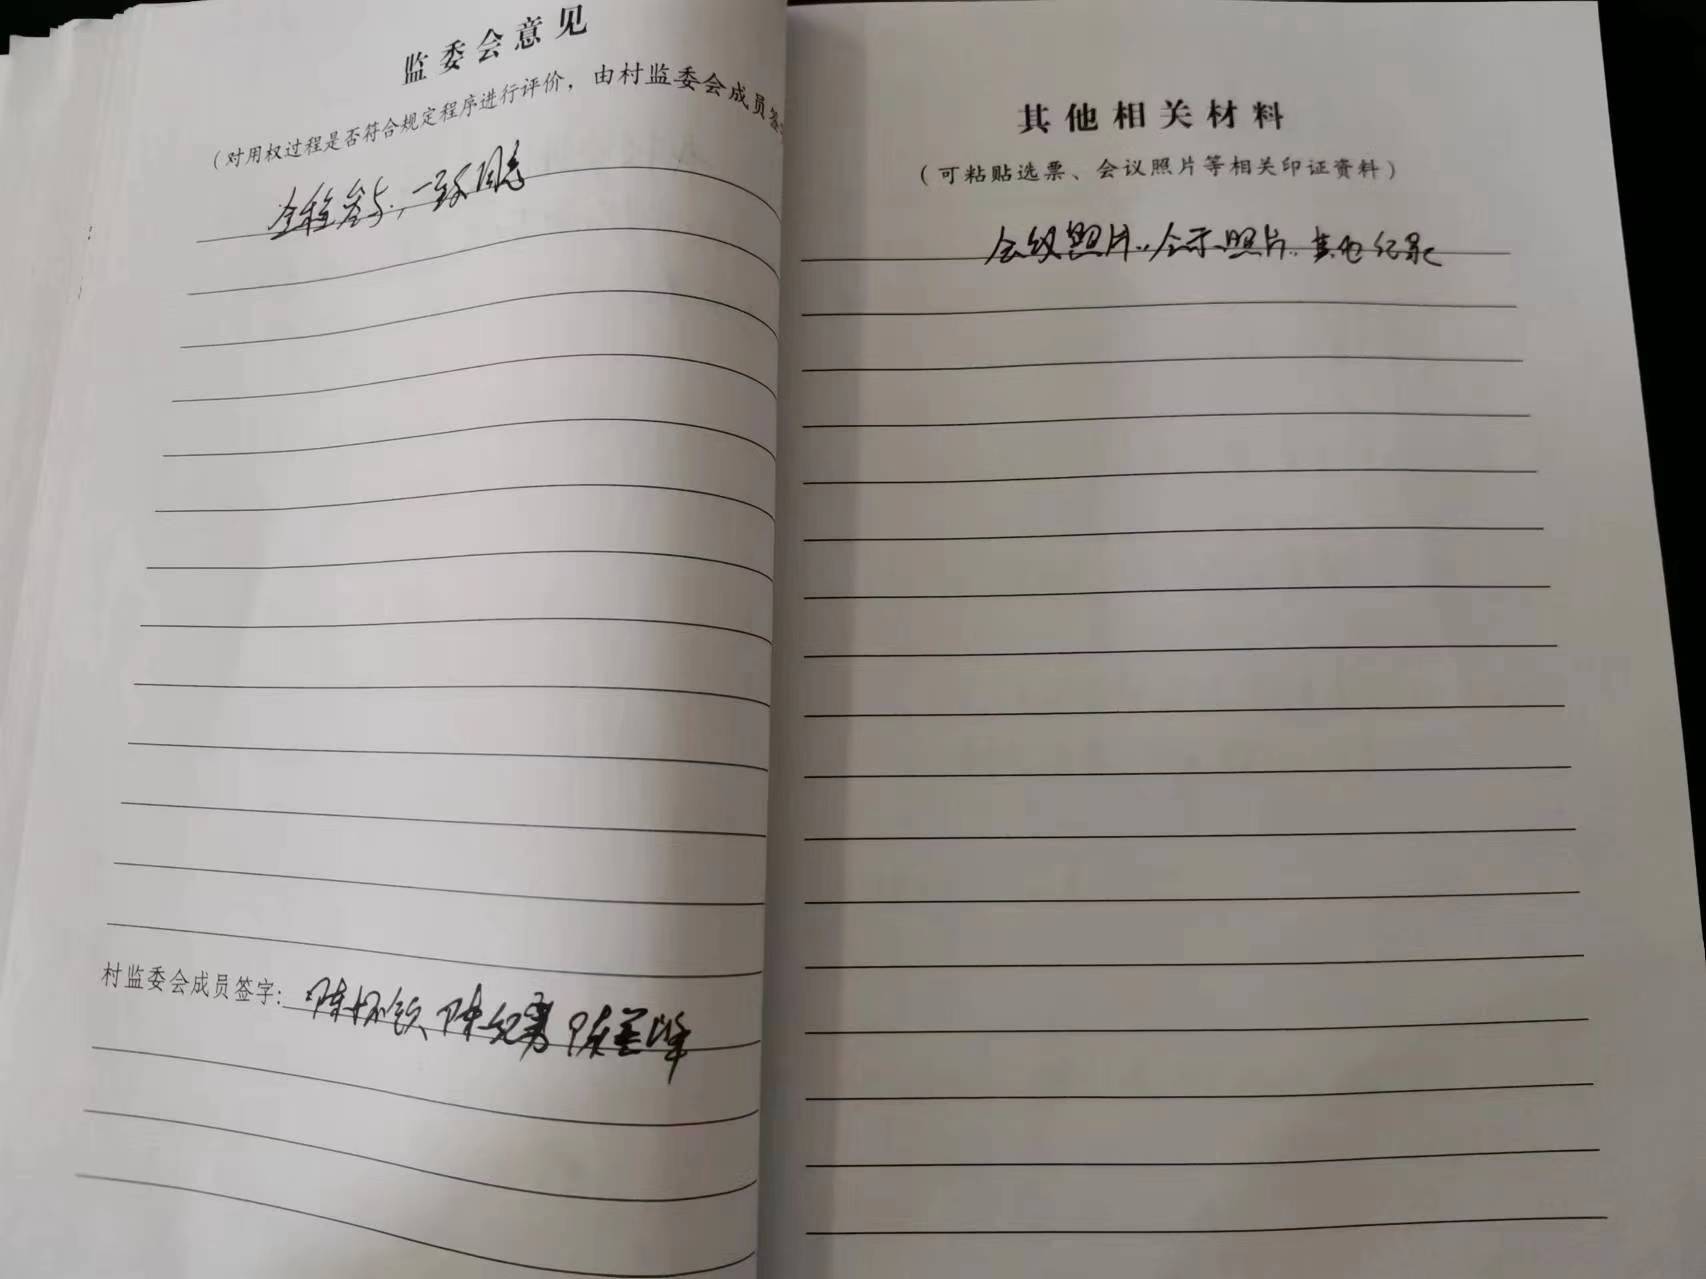 监委会意见
(对用权过程是否符合规定程序进行评价，由村监委会成员签
全程参与，一致同意
村监委会成员签字：陈怀钦 陈纪勇 陈
其他相关材料
(可粘贴选票、会议照片等相关印证资料)
会议照片、公示照片、其他记录